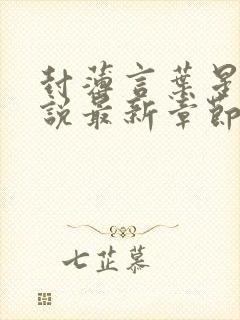 封薄言葉星
說最新章節
七芷慕